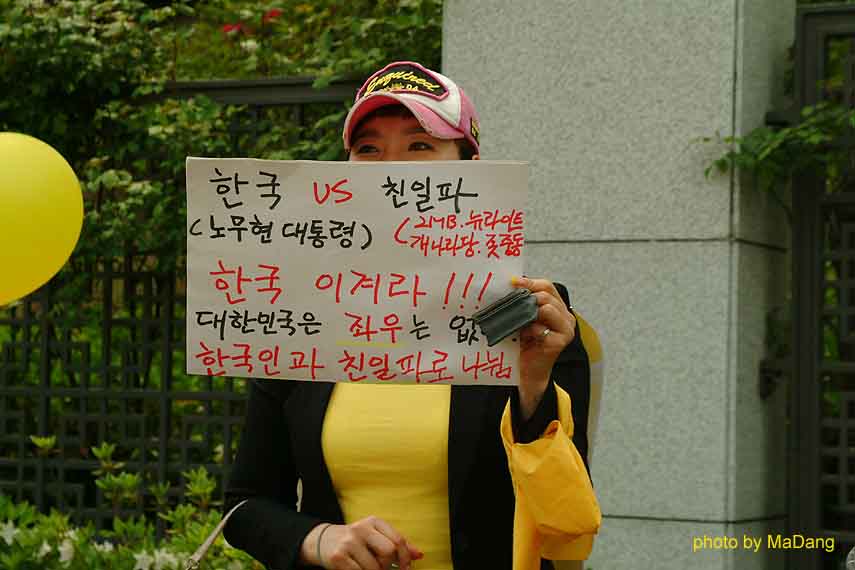 한국 VS 친일파
(노무현 대통령) (2MB. 뉴라이트
개나라당. 좃중동
한국 이겨라 !!!
대한민국은 좌우는
한국인과 친일파로 나뉨
photo by MaDang